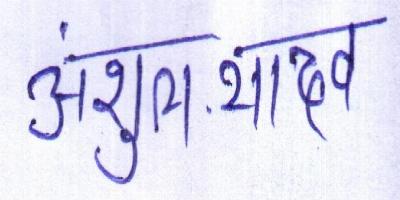 अंशुल यादव